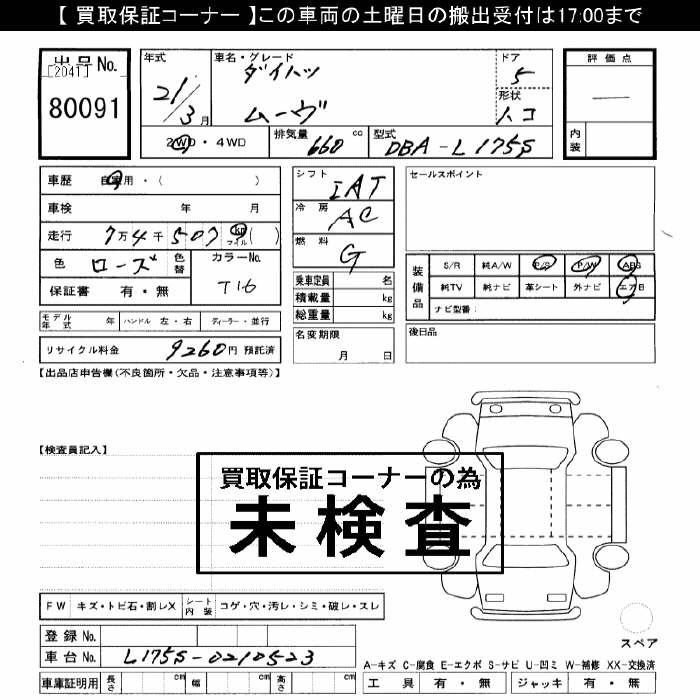 【 買取保証コーナー 】この車両の土曜日の搬出受付は17:00まで
出品No.
[2041]
80091
年式
21/3月
車名・グレード
ダイハツ
ムーヴ
ドア
5
形状
ハコ
評価点
—
内装
2WD・4WD
排気量 660 cc
型式 DBA-L175S
車歴 自家用・( )
車検 年 月
走行 7万4千507 km マイル ( )
色 ローズ 色替
カラーNo.
T16
保証書 有・無
シフト IAT
冷房 AC
燃料 G
乗車定員 名
積載量 kg
総重量 kg
セールスポイント
装備品
S/R 純A/W P/S P/W ABS
純TV 純ナビ 革シート 外ナビ エアB
ナビ型番:
モデル年式 年 ハンドル 左・右 ディーラー・並行
名変期限
月 日
後日品
リサイクル料金 9260円 預託済
【出品店申告欄(不良箇所・欠品・注意事項等)】
【検査員記入】
買取保証コーナーの為
未検査
FW キズ・トビ石・割レX シート内装 コゲ・穴・汚レ・シミ・破レ・スレ
スペア
登録No.
車台No. L175S-0210523
A-キズ C-腐食 E-エクボ S-サビ U-凹ミ W-補修 XX-交換済
車庫証明用 長さ cm 幅 cm 高さ cm
工具 有・無 ジャッキ 有・無